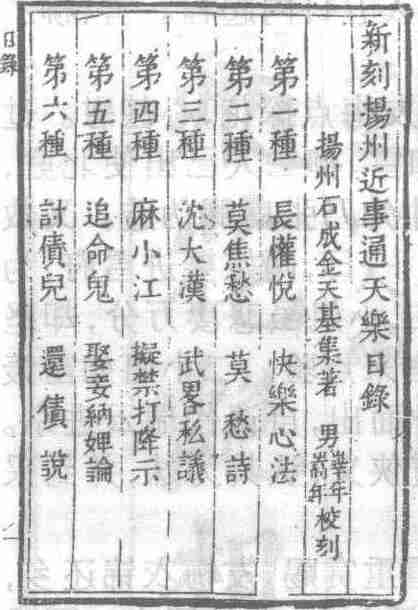 新刻揚州近事通天樂目錄
揚州石成金天基集著 男 年 年 校刻
第一種 長懽悅 快樂心法
第二種 莫焦愁 莫愁詩
第三種 沈大漢 武畧私議
第四種 麻小江 擬禁打降示
第五種 追命鬼 娶妾納婢論
第六種 討債兒 還債說
目錄
一